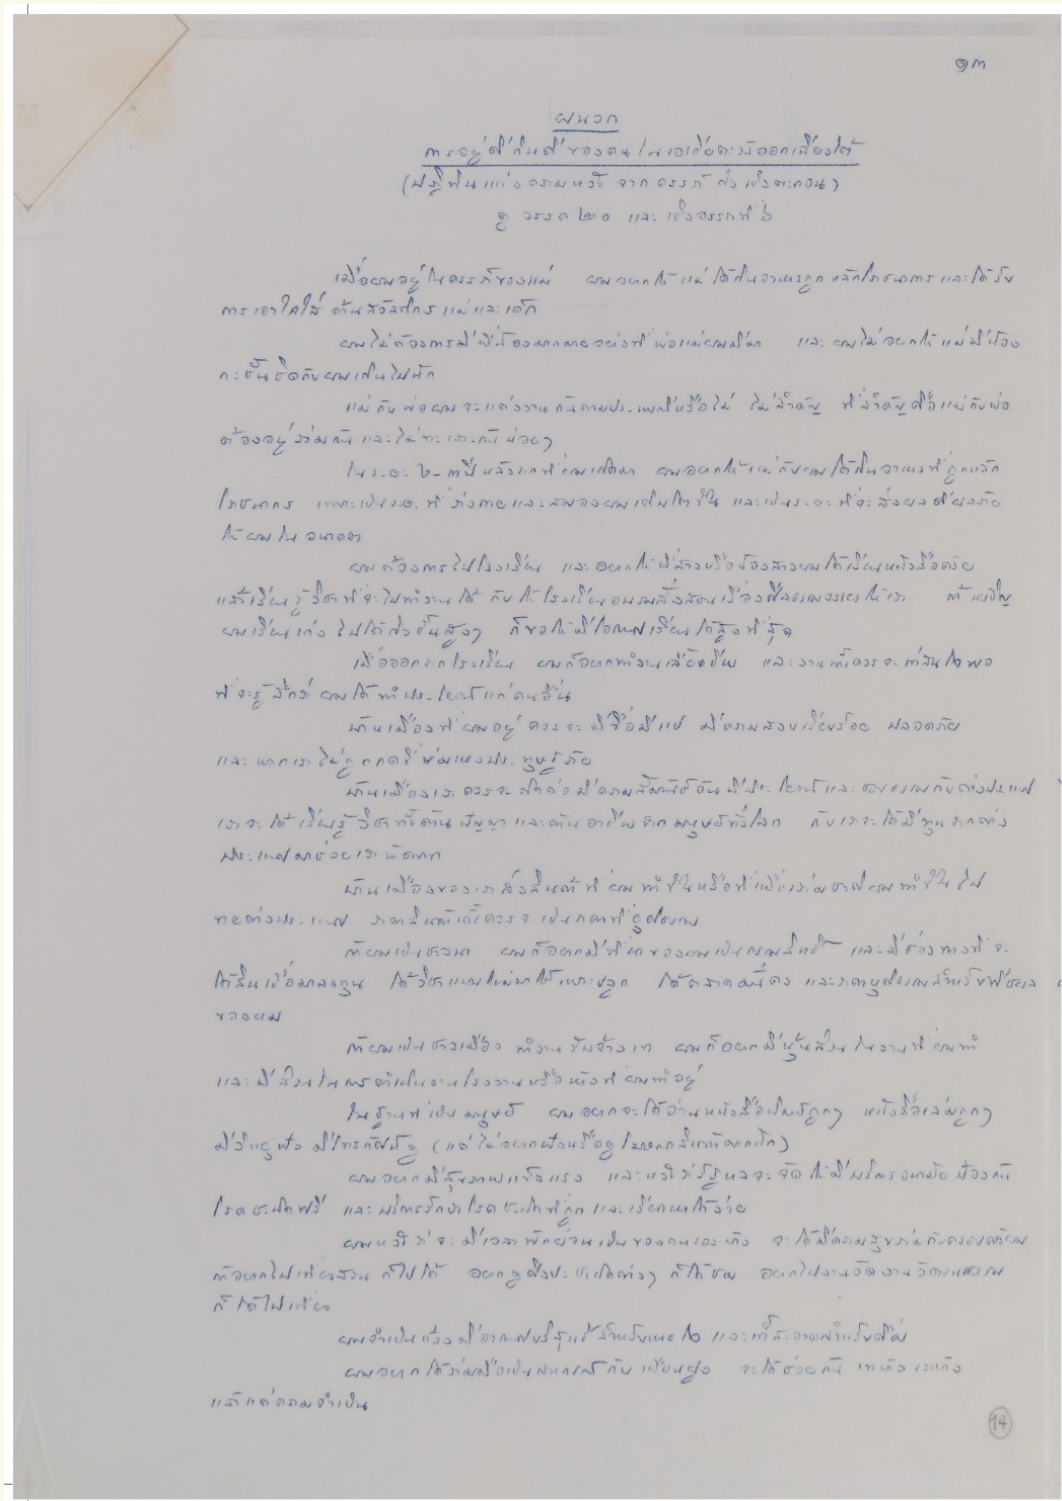 ๑๓
ผนวก
การอยู่ดีกินดีของคนในเอเชียตะวันออกเฉียงใต้
(ปฏิทินแห่งความหวัง จากครรภ์ ถึงเชิงตะกอน)
ดู วรรค ๒๐ และเชิงอรรถที่ ๖
เมื่อผมอยู่ในครรภ์ของแม่ ผมอยากให้แม่ได้กินอาหารถูกหลักโภชนาการและได้รับ
การเอาใจใส่ ด้านสวัสดิการแม่และเด็ก
ผมไม่ต้องการมีพี่น้องมากมายอย่างที่พ่อแม่ผมมีมา และผมไม่อยากให้แม่มีน้อง
กระชั้นชิดกับผมเกินไปนัก
แม่กับพ่อผมจะแต่งงานกันตามประเพณีหรือไม่ ไม่สำคัญ ที่สำคัญคือแม่กับพ่อ
ต้องอยู่ร่วมกันและไม่ทะเลาะกันบ่อยๆ
ในระยะ ๒-๓ ปีหลังจากที่ผมเกิดมา ผมอยากให้แม่กับผมได้กินอาหารที่ถูกหลัก
โภชนาการ เพราะเป็นระยะที่ร่างกายและสมองผมเติบโตขึ้น และเป็นระยะที่จะส่งผลดีผลร้าย
ให้ผมในอนาคต
ผมต้องการไปโรงเรียน และอยากให้พี่สาวหรือน้องสาวผมได้เรียนหนังสือด้วย
แล้วเรียนรู้วิชาที่จะไปทำงานได้ กับให้โรงเรียนอบรมสั่งสอนเรื่องศีลธรรมจรรยาให้เรา ถ้าเผอิญ
ผมเรียนเก่ง ไปได้ถึงชั้นสูงๆ ก็ขอให้มีโอกาสเรียนได้สูงที่สุด
เมื่อออกจากโรงเรียน ผมก็อยากทำงานเลี้ยงชีพ และงานนั้นควรจะน่าสนใจพอ
ที่จะรู้สึกว่าผมได้ทำประโยชน์แก่คนอื่น
บ้านเมืองที่ผมอยู่ ควรจะมีขื่อมีแป มีความสงบเรียบร้อย ปลอดภัย
และพวกเราไม่ถูกกดขี่ข่มเหงประทุษร้าย
บ้านเมืองเราควรจะติดต่อมีความสัมพันธ์อันมีประโยชน์และชอบธรรมกับต่างประเทศ
เราจะได้เรียนรู้วิชาทั้งด้านปัญญาและด้านอาชีพจากมนุษย์ทั้งโลก กับเราจะได้มีทุนจากต่าง
ประเทศมาช่วยเราพัฒนา
บ้านเมืองของเราส่งสินค้าที่ผมทำขึ้นหรือที่เพื่อนร่วมชาติผมทำขึ้นไป
ขายต่างประเทศ ราคาสินค้านี้ควรจะเป็นราคาที่ยุติธรรม
ถ้าผมเป็นชาวนา ผมก็อยากมีที่นาของผมเป็นกรรมสิทธิ์ และมีช่องทางที่จะ
ได้สินเชื่อมาลงทุน ได้วิชาแผนใหม่มาใช้เพาะปลูก ได้ตลาดมั่นคง และราคายุติธรรมสำหรับพืชผล
ของผม
ถ้าผมเป็นชาวเมือง ทำงานรับจ้างเขา ผมก็อยากมีหุ้นส่วนในงานที่ผมทำ
และมีส่วนในการดำเนินงานโรงงานหรือห้างที่ผมทำอยู่
ในฐานที่เป็นมนุษย์ ผมอยากจะได้อ่านหนังสือพิมพ์ถูกๆ หนังสือเล่มถูกๆ
มีวิทยุฟัง มีโทรทัศน์ดู (แต่ไม่อยากฟังหรือดูโฆษณาสินค้ามากนัก)
ผมอยากมีสุขภาพแข็งแรง และหวังว่ารัฐบาลจะจัดให้มีบริการอนามัยป้องกัน
โรคชนิดฟรี และบริการรักษาโรคชนิดที่ถูกและเรียกหาได้ง่าย
ผมหวังว่าจะมีเวลาพักผ่อนเป็นของตนเองบ้าง จะได้มีความสุขร่วมกับครอบครัวผม
ถ้าอยากไปเที่ยวสวน ก็ไปได้ อยากดูศิลปะชนิดต่างๆ ก็ได้ชม อยากไปงานวัดงานวัฒนธรรม
ก็ได้ไปเที่ยว
ผมจำเป็นต้องมีอากาศบริสุทธิ์สำหรับหายใจ และน้ำสะอาดสำหรับดื่ม
ผมอยากได้ร่วมมือเป็นสหกรณ์กับเพื่อนฝูง จะได้ช่วยกัน เขาบ้างเราบ้าง
แล้วแต่ความจำเป็น
14